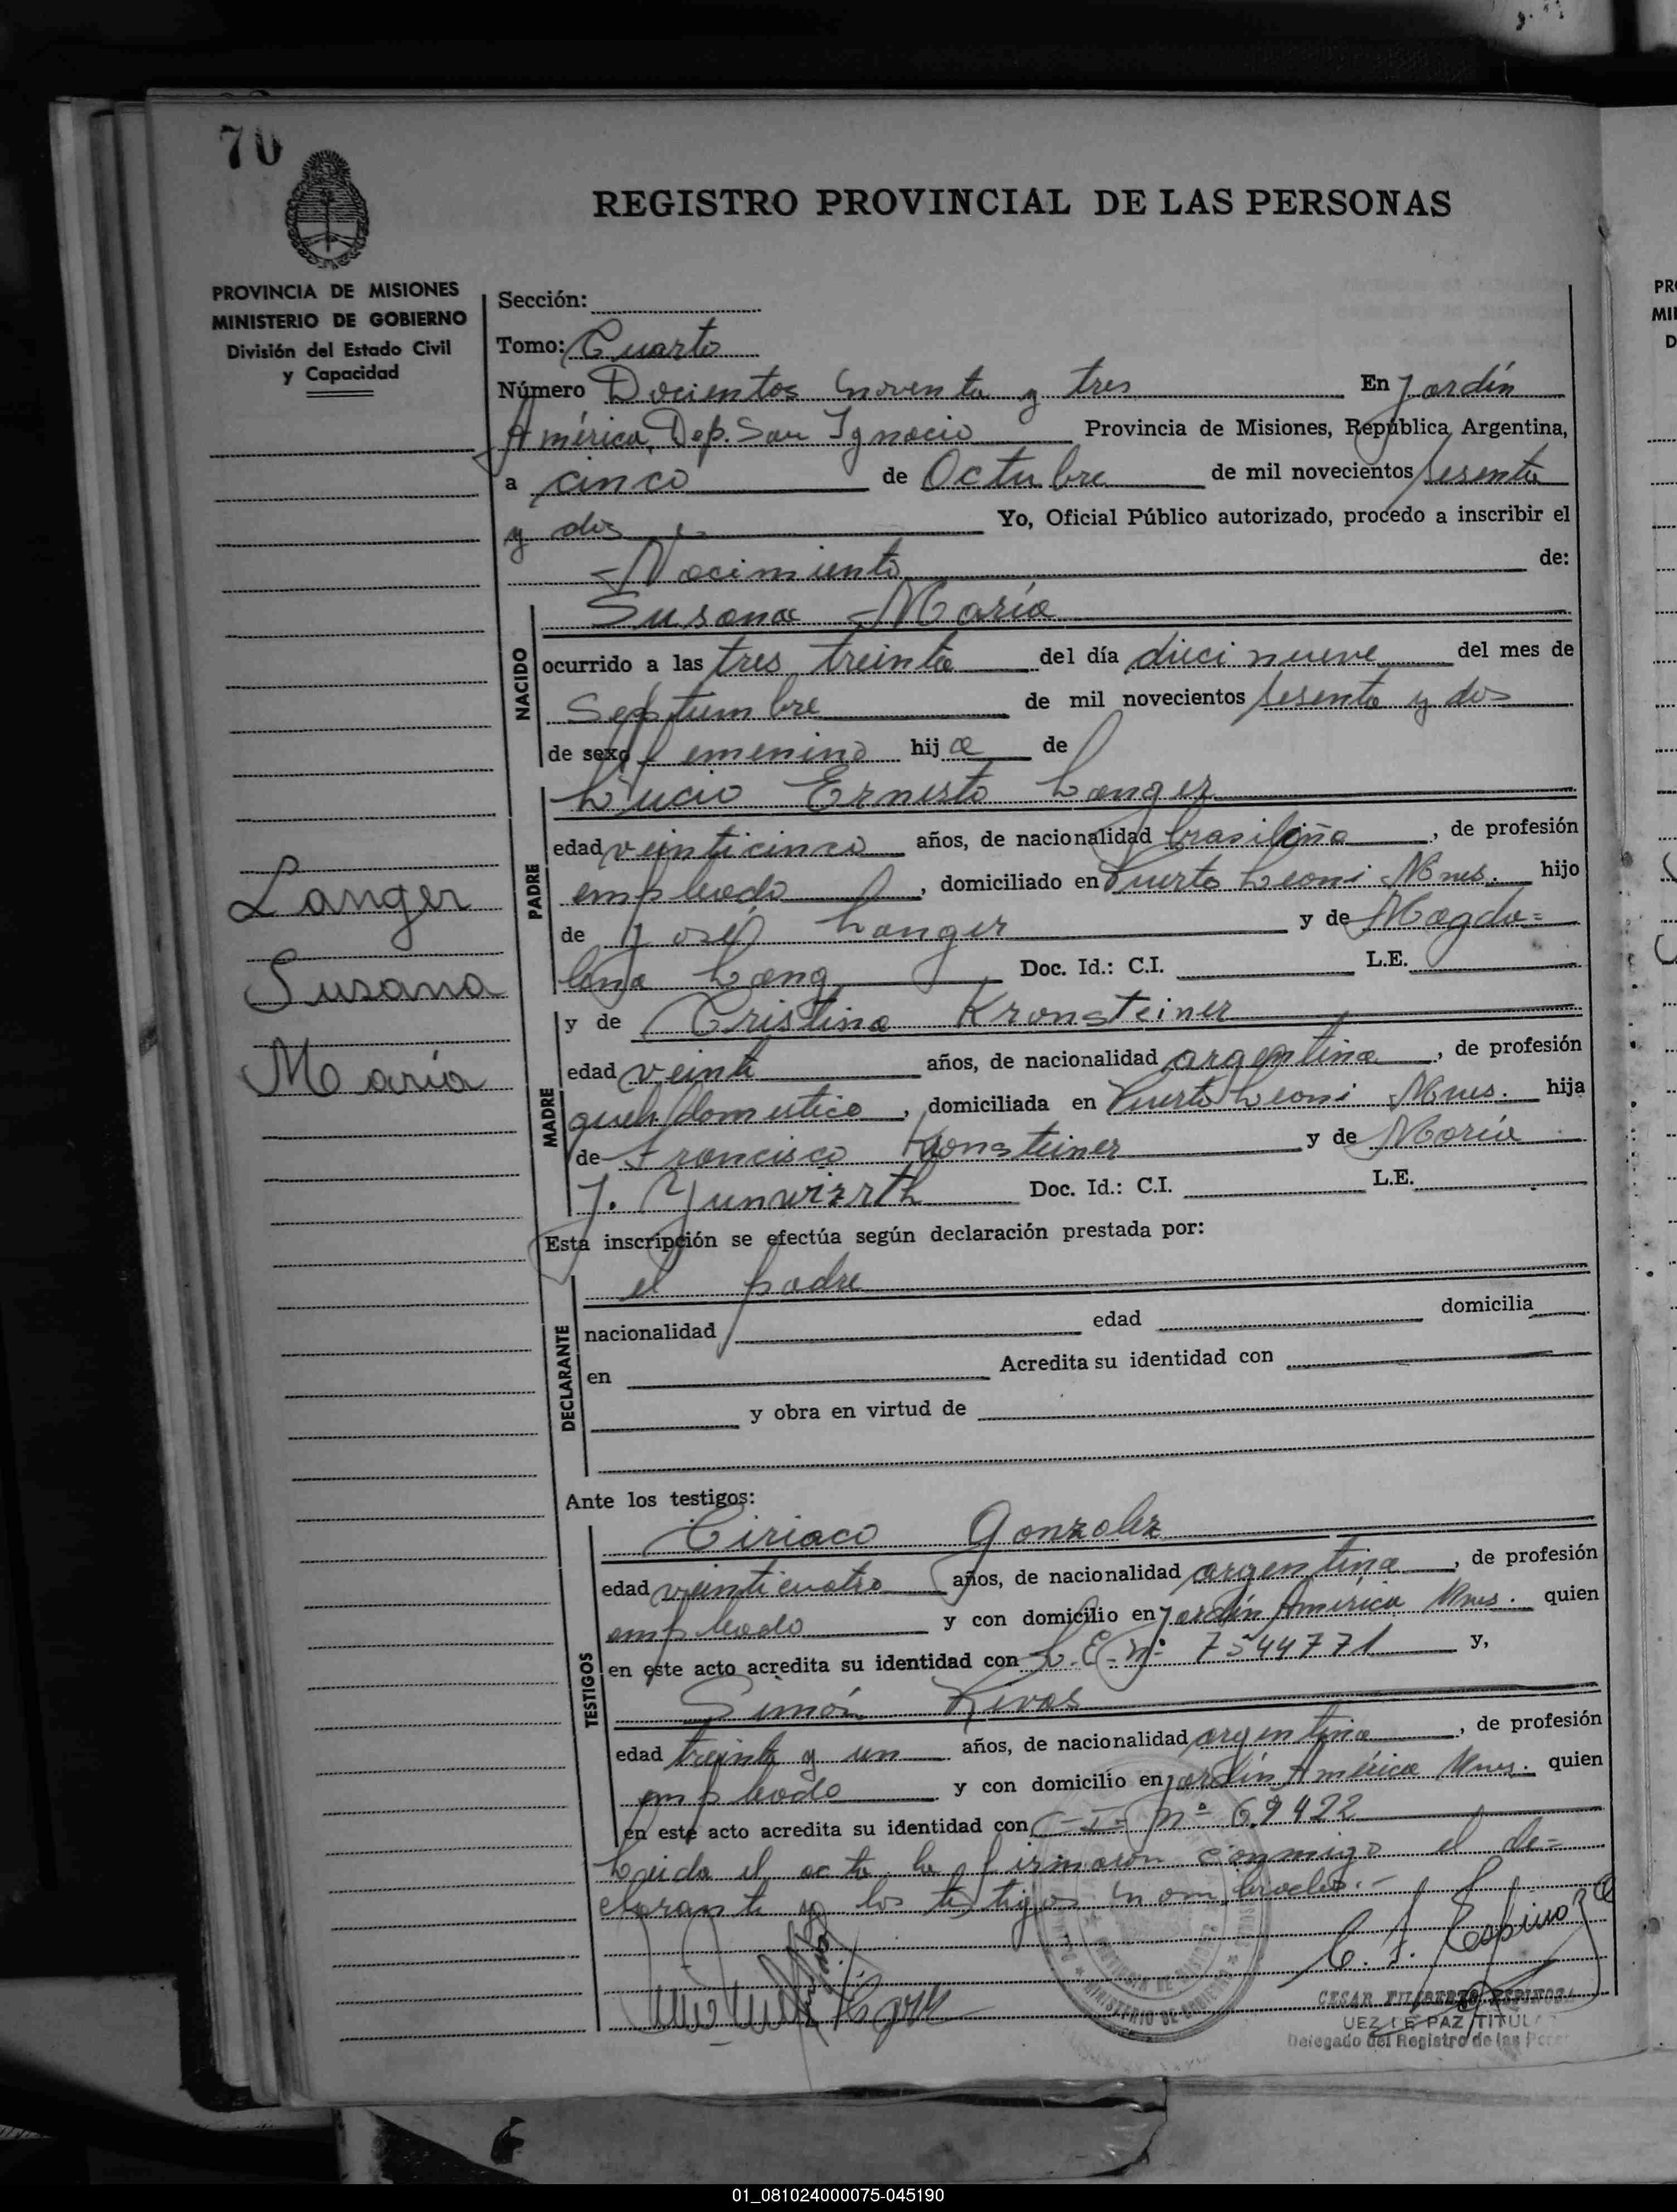 70
REGISTRO PROVINCIAL DE LAS PERSONAS
PROVINCIA DE MISIONES
MINISTERIO DE GOBIERNO
División del Estado Civil
y Capacidad
Sección:
Tomo: Cuarto
Número Docientos noventa y tres En Jardín
América, Dep. San Ignacio Provincia de Misiones, República Argentina,
a cinco de Octubre de mil novecientos sesenta
y dos Yo, Oficial Público autorizado, procedo a inscribir el
Nacimiento de:
NACIDO
Susana María
ocurrido a las tres treinta del día diecinueve del mes de
Septiembre de mil novecientos sesenta y dos
de sexo femenino hija de
PADRE
Lucio Ernesto Langer
edad veinticinco años, de nacionalidad brasileña, de profesión
empleado, domiciliado en Puerto Leoni Mnes. hijo
de José Langer y de Magda=
lena Lang Doc. Id.: C.I. L.E.
Langer
Susana
María
MADRE
y de Cristina Kronsteiner
edad veinte años, de nacionalidad argentina, de profesión
queh. domestico, domiciliada en Puerto Leoni Mnes. hija
de Francisco Kronsteiner y de María
J. Yunwirth Doc. Id.: C.I. L.E.
Esta inscripción se efectúa según declaración prestada por:
DECLARANTE
el padre
nacionalidad edad domicilia
en Acredita su identidad con
y obra en virtud de
Ante los testigos:
TESTIGOS
Ciriaco Gonzalez
edad veinticuatro años, de nacionalidad argentina, de profesión
empleado y con domicilio en Jardín América Mnes. quien
en este acto acredita su identidad con L.E. nº 7544771 y,
Simón Rivas
edad treinta y un años, de nacionalidad argentina, de profesión
empleado y con domicilio en Jardín América Mnes. quien
en este acto acredita su identidad con C.I. nº 69422
Leida el acta la firmaron conmigo el de=
clarante y los testigos nombrados.-
C. F. Espinoza
CESAR FILIBERTO ESPINOZA
JUEZ DE PAZ TITULAR
Delegado del Registro de las Pers
PROVINCIA DE MISIONES
MINISTERIO DE GOBIERNO
01_081024000075-045190